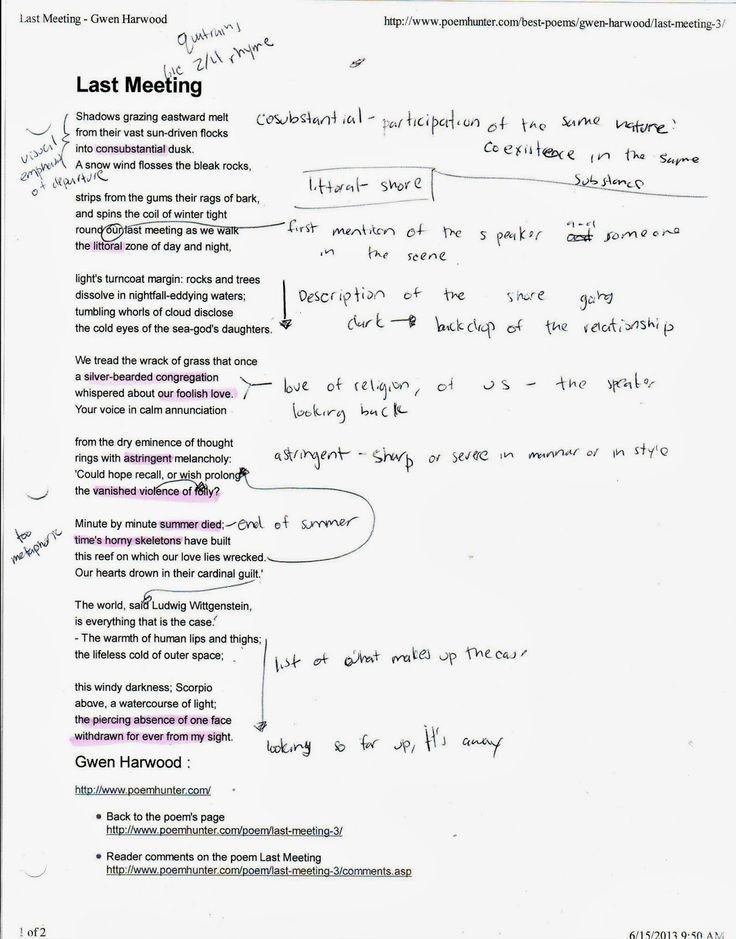 Last Meeting - Gwen Harwood
http://www.poemhunter.com/best-poems/gwen-harwood/last-meeting-3/
quatrains
b/c 2/4 rhyme
Last Meeting
Shadows grazing eastward melt
from their vast sun-driven flocks
into consubstantial dusk.
A snow wind flosses the bleak rocks,
visual
emphasis
of departure
cosubstantial - participation of the same nature:
coexistence in the same
substance
strips from the gums their rags of bark,
and spins the coil of winter tight
round our last meeting as we walk
the littoral zone of day and night,
littoral - shore
first mention of the speaker and someone
in the scene
light's turncoat margin: rocks and trees
dissolve in nightfall-eddying waters;
tumbling whorls of cloud disclose
the cold eyes of the sea-god's daughters.
Description of the shore going
dark → backdrop of the relationship
We tread the wrack of grass that once
a silver-bearded congregation
whispered about our foolish love.
Your voice in calm annunciation
love of religion, of us - the speaker
looking back
from the dry eminence of thought
rings with astringent melancholy:
'Could hope recall, or wish prolong
the vanished violence of folly?
astringent - sharp or severe in mannar or in style
Minute by minute summer died;
time's horny skeletons have built
this reef on which our love lies wrecked.
Our hearts drown in their cardinal guilt.'
end of summer
too
metaphoric
The world, said Ludwig Wittgenstein,
is everything that is the case.'
- The warmth of human lips and thighs;
the lifeless cold of outer space;
list of what makes up the case
this windy darkness; Scorpio
above, a watercourse of light;
the piercing absence of one face
withdrawn for ever from my sight.
looking so far up, it's away
Gwen Harwood :
http://www.poemhunter.com/
• Back to the poem's page
http://www.poemhunter.com/poem/last-meeting-3/
• Reader comments on the poem Last Meeting
http://www.poemhunter.com/poem/last-meeting-3/comments.asp
1 of 2
6/15/2013 9:50 AM